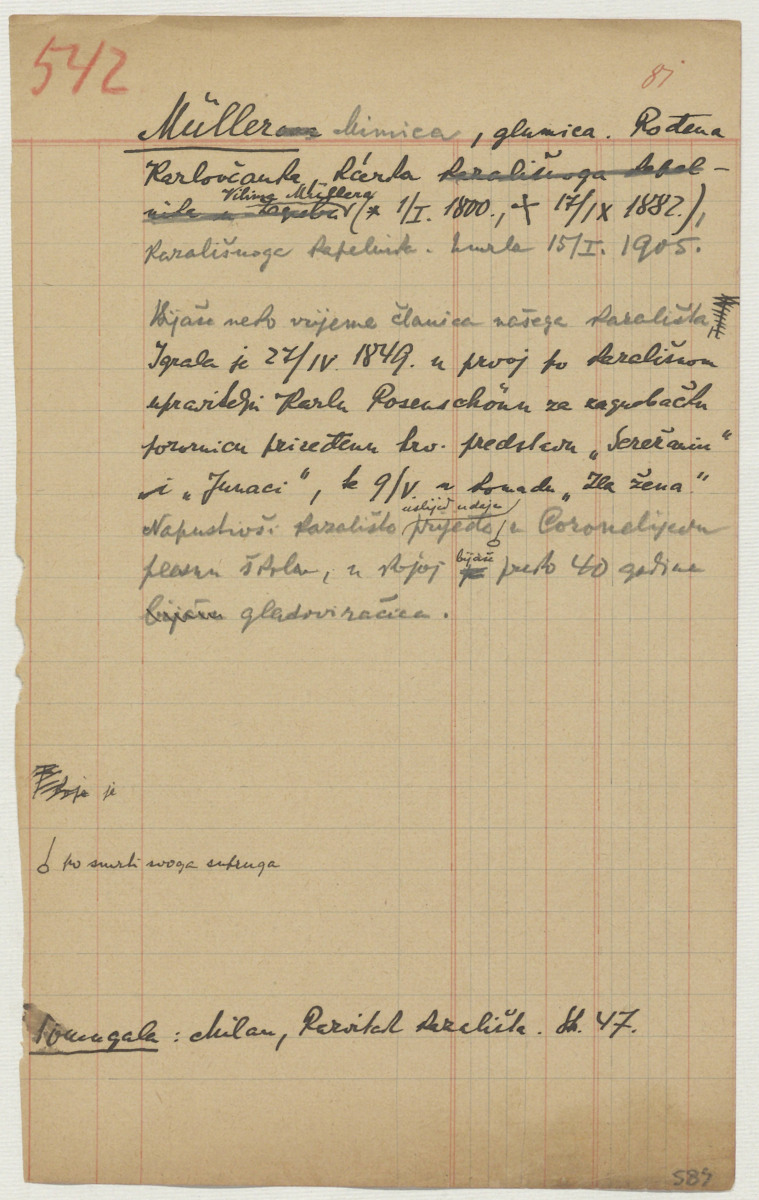 542
81
Müller Mimica, glumica. Rođena
Karlovčanka, kćerka kazališnoga kapel-
nika u Zagrebu Vilima Müllera (* 1/I. 1800., + 17/IX 1882.),
kazališnoga kapelnika. Umrla 15/I. 1905.
Bijaše neko vrijeme članica našega kazališta
Igrala je 27/IV. 1849. u prvoj po kazališnom
upravitelju Karlu Rosenschönu za zagrebačku
pozornicu priređenu hrv. predstavu „Serežanin“
i „Junaci“, te 9/V. u komadu „Zla žena“.
uslijed udaje
Napustivši kazalište prijeđe u Coronelijevu
plesnu školu, u kojoj bijaše preko 40 godina
bijaše glasoviračica.
koja je
po smrti svoga supruga
: Milan, Razvitak kazališta. Str. 47.
584